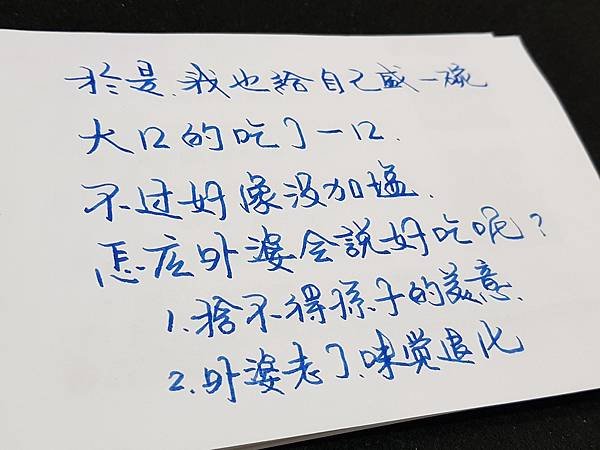 於是.我也給自己盛一碗
大口的吃了一口.
不过好像没加塩.
怎広外婆会說好吃呢?
1.捨不得孫子的美意.
2.外婆老了.味覚退化